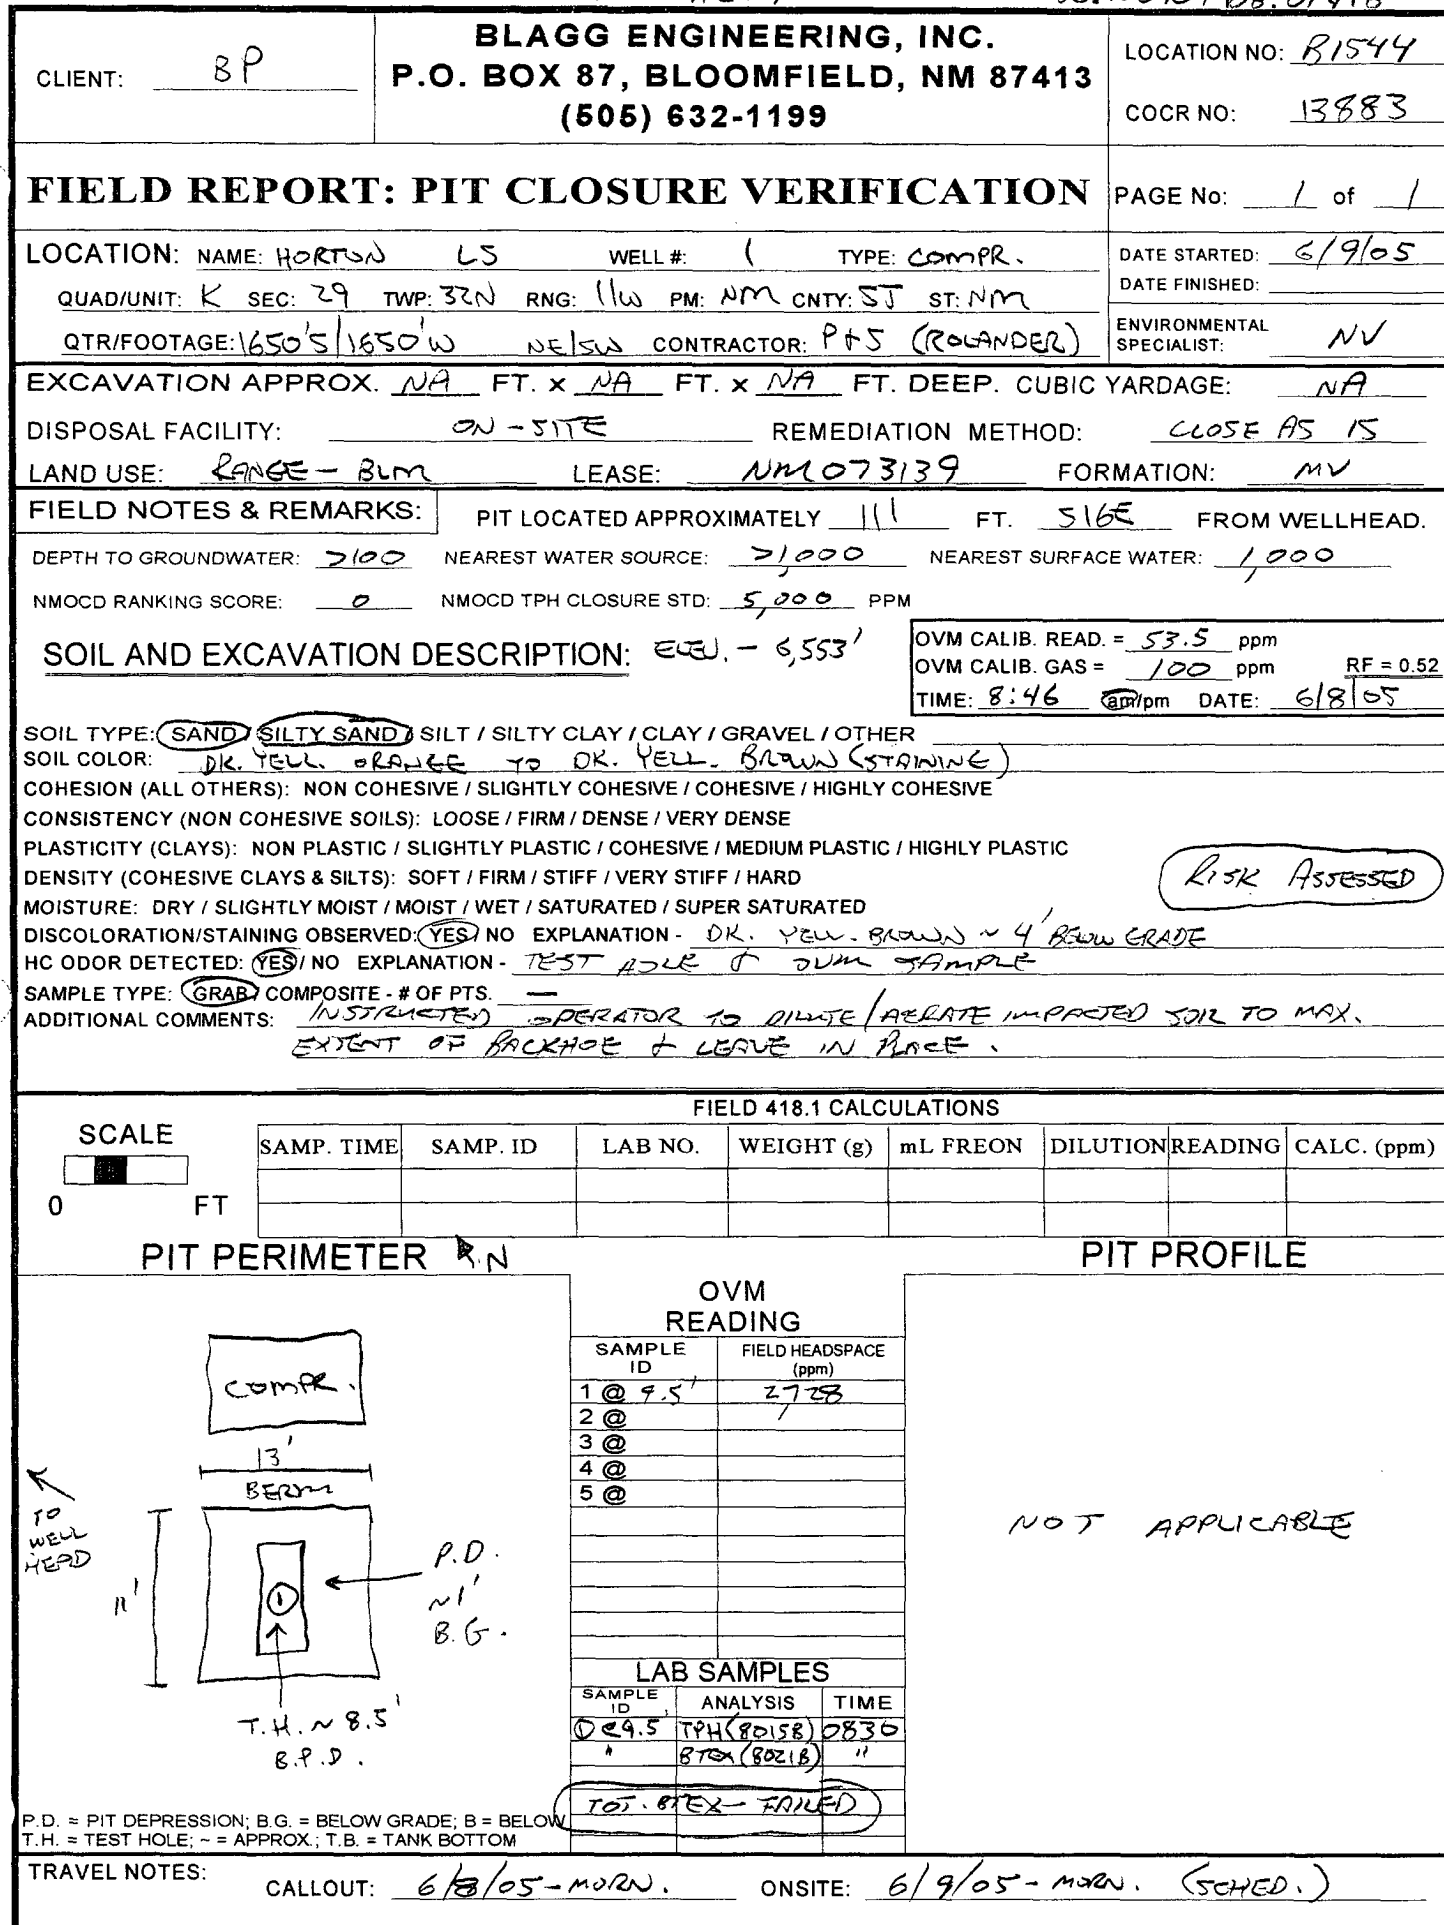 CLIENT: BP
BLAGG ENGINEERING, INC.
P.O. BOX 87, BLOOMFIELD, NM 87413
(505) 632-1199
LOCATION NO: B1544
COCR NO: 13883
FIELD REPORT: PIT CLOSURE VERIFICATION
PAGE No: 1 of 1
LOCATION: NAME: HORTON LS WELL #: 1 TYPE: COMPR.
QUAD/UNIT: K SEC: 29 TWP: 32N RNG: 11W PM: NM CNTY: SJ ST: NM
QTR/FOOTAGE: 1650'S/1650'W NE/SW CONTRACTOR: P+S (ROLANDER)
DATE STARTED: 6/9/05
DATE FINISHED:
ENVIRONMENTAL SPECIALIST: NV
EXCAVATION APPROX. NA FT. x NA FT. x NA FT. DEEP. CUBIC YARDAGE: NA
DISPOSAL FACILITY: ON-SITE REMEDIATION METHOD: CLOSE AS IS
LAND USE: RANGE - BLM LEASE: NM073139 FORMATION: MV
FIELD NOTES & REMARKS: PIT LOCATED APPROXIMATELY 111 FT. S16E FROM WELLHEAD.
DEPTH TO GROUNDWATER: >100 NEAREST WATER SOURCE: >1,000 NEAREST SURFACE WATER: 1,000
NMOCD RANKING SCORE: 0 NMOCD TPH CLOSURE STD: 5,000 PPM
SOIL AND EXCAVATION DESCRIPTION: ELEV. - 6,553'
OVM CALIB. READ. = 53.5 ppm
OVM CALIB. GAS = 100 ppm RF = 0.52
TIME: 8:46 am/pm DATE: 6/8/05
SOIL TYPE: SAND / SILTY SAND / SILT / SILTY CLAY / CLAY / GRAVEL / OTHER
SOIL COLOR: DK. YELL. ORANGE TO DK. YELL. BROWN (STAINING)
COHESION (ALL OTHERS): NON COHESIVE / SLIGHTLY COHESIVE / COHESIVE / HIGHLY COHESIVE
CONSISTENCY (NON COHESIVE SOILS): LOOSE / FIRM / DENSE / VERY DENSE
PLASTICITY (CLAYS): NON PLASTIC / SLIGHTLY PLASTIC / COHESIVE / MEDIUM PLASTIC / HIGHLY PLASTIC
DENSITY (COHESIVE CLAYS & SILTS): SOFT / FIRM / STIFF / VERY STIFF / HARD
RISK ASSESSED
MOISTURE: DRY / SLIGHTLY MOIST / MOIST / WET / SATURATED / SUPER SATURATED
DISCOLORATION/STAINING OBSERVED: YES / NO EXPLANATION - DK. YELL. BROWN ~ 4' BELOW GRADE
HC ODOR DETECTED: YES / NO EXPLANATION - TEST HOLE & OVM SAMPLE
SAMPLE TYPE: GRAB / COMPOSITE - # OF PTS. —
ADDITIONAL COMMENTS: INSTRUCTED OPERATOR TO DILUTE/AERATE IMPACTED SOIL TO MAX.
EXTENT OF BACKHOE & LEAVE IN PLACE.
FIELD 418.1 CALCULATIONS
SCALE
0 FT
SAMP. TIME SAMP. ID LAB NO. WEIGHT (g) mL FREON DILUTION READING CALC. (ppm)
PIT PERIMETER N
PIT PROFILE
COMPR.
13'
BERM
TO WELL HEAD
11'
1
P.D. ~1' B.G.
T.H. ~ 8.5'
B.P.D.
OVM READING
SAMPLE ID FIELD HEADSPACE (ppm)
1 @ 9.5' 2,728
2 @
3 @
4 @
5 @
NOT APPLICABLE
LAB SAMPLES
SAMPLE ID ANALYSIS TIME
① @ 9.5' TPH (8015B) 0830
" BTEX (8021B) "
TOT. BTEX - FAILED
P.D. = PIT DEPRESSION; B.G. = BELOW GRADE; B = BELOW
T.H. = TEST HOLE; ~ = APPROX.; T.B. = TANK BOTTOM
TRAVEL NOTES: CALLOUT: 6/8/05 - MORN. ONSITE: 6/9/05 - MORN. (SCHED.)